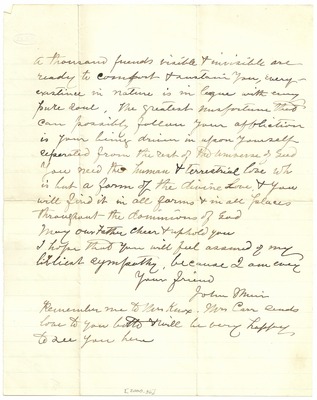 A thousand friends visible & invisible are
ready to comfort & sustain you, every
existence in nature is in league with every
pure soul. The greatest misfortune that
can possibly follow your affliction
is your being driven in upon yourself
separated from the rest of the universe of God
You need the human & terrestrial love wh
is but a form of the divine love & you
will find it in all forms & in all places
throughout the dominions of God
May our Father cheer & uphold you
I hope that you will feel assured of my
sympathy, because I am ever
Your friend
John Muir
Remember me to Mrs Knox. Mrs Carr sends
love to you both & will be very happy
to see you here